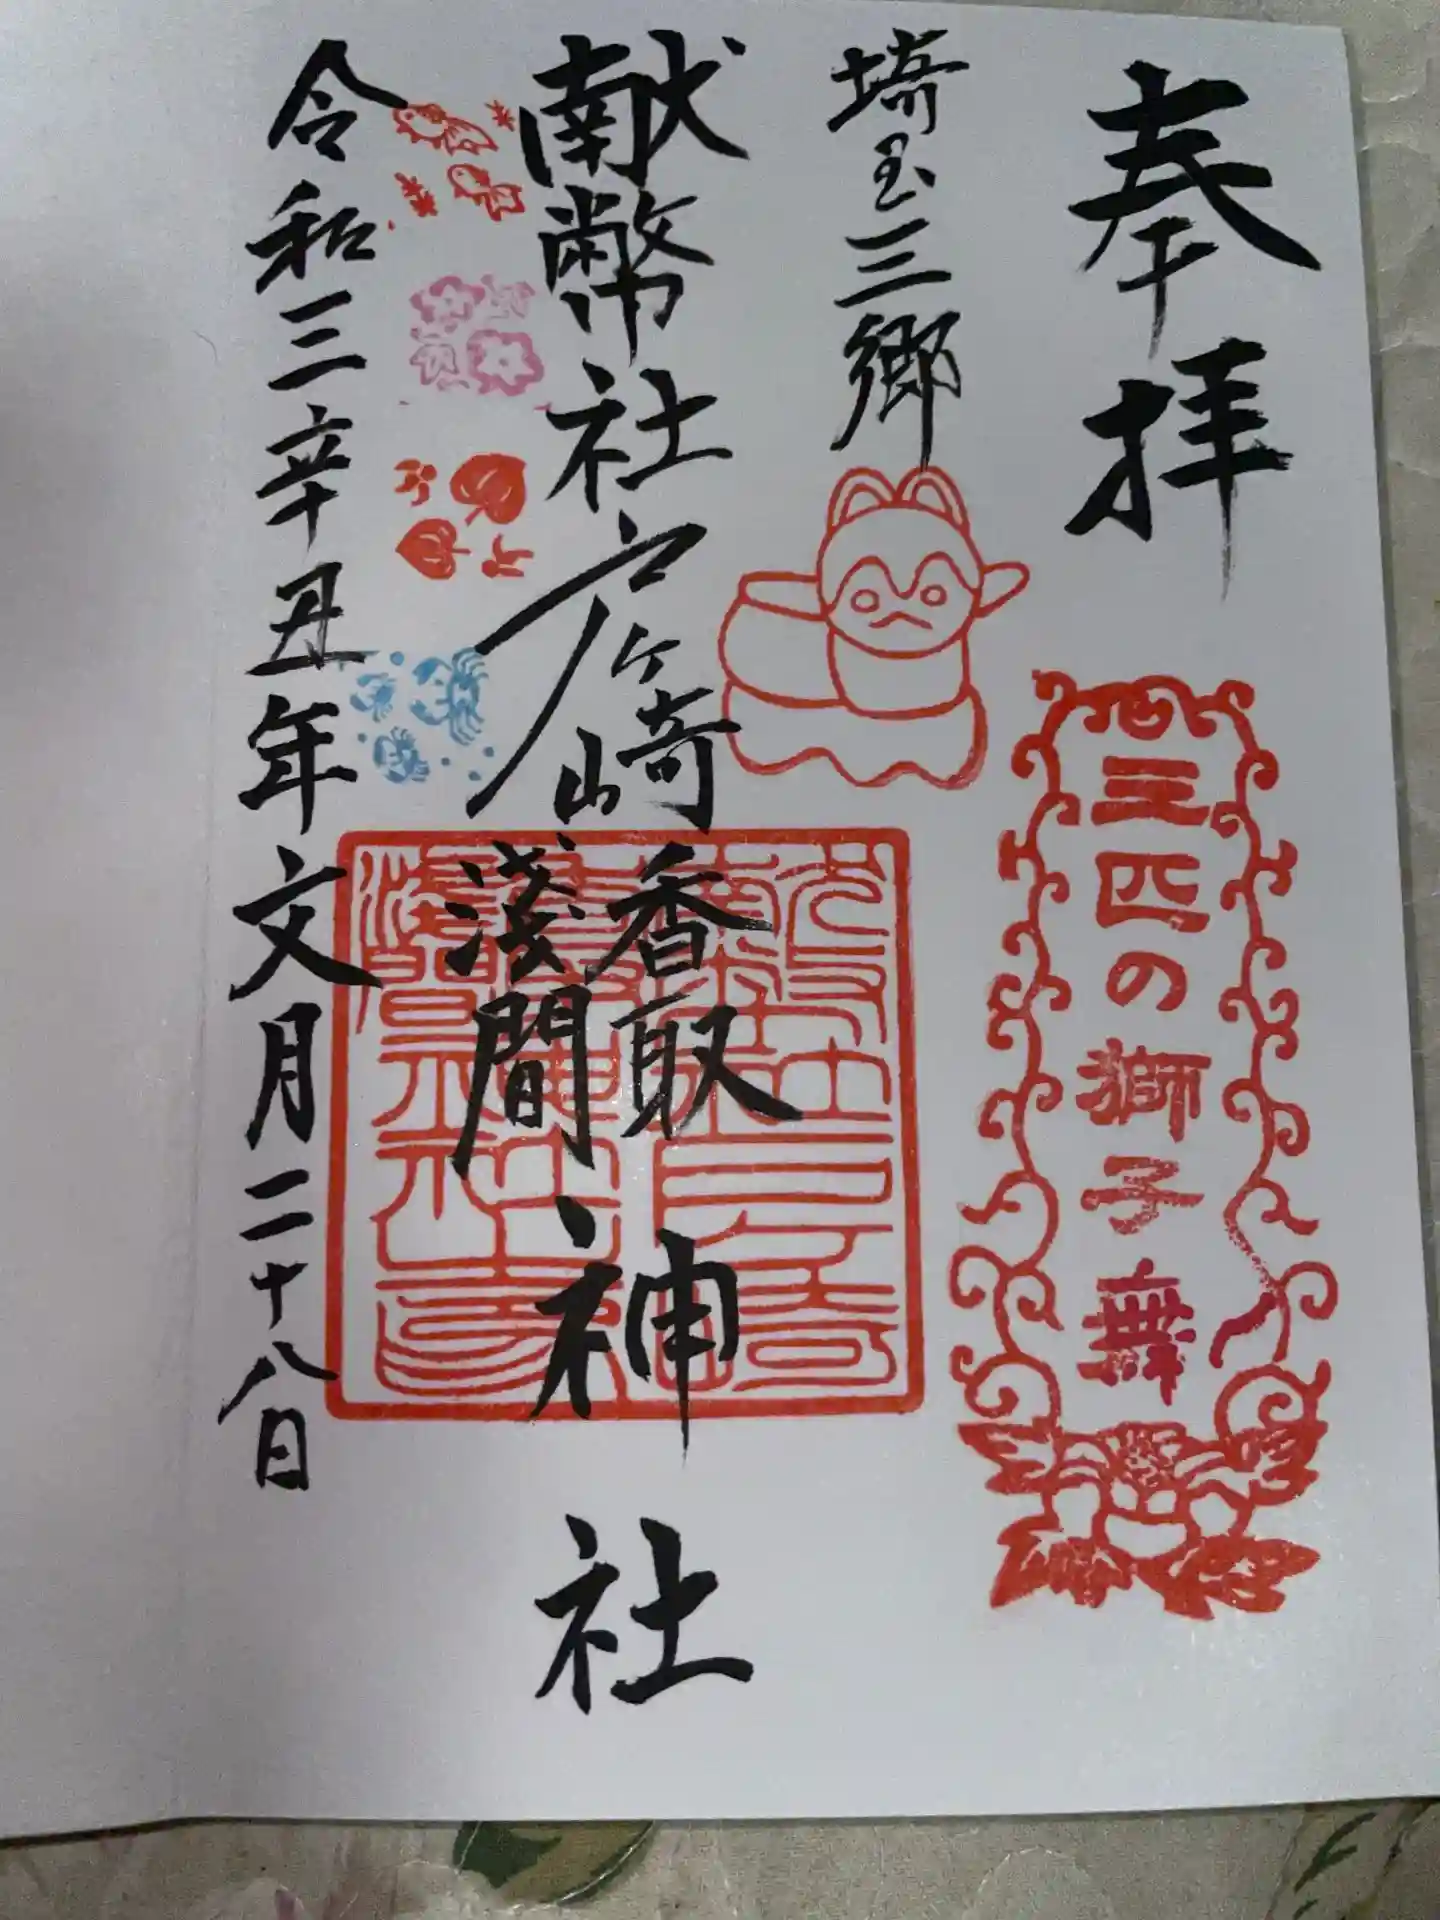 奉拝
三匹の獅子舞
埼玉三郷
献幣社戸ヶ崎香取
浅間
神社
令和三辛丑年文月二十八日